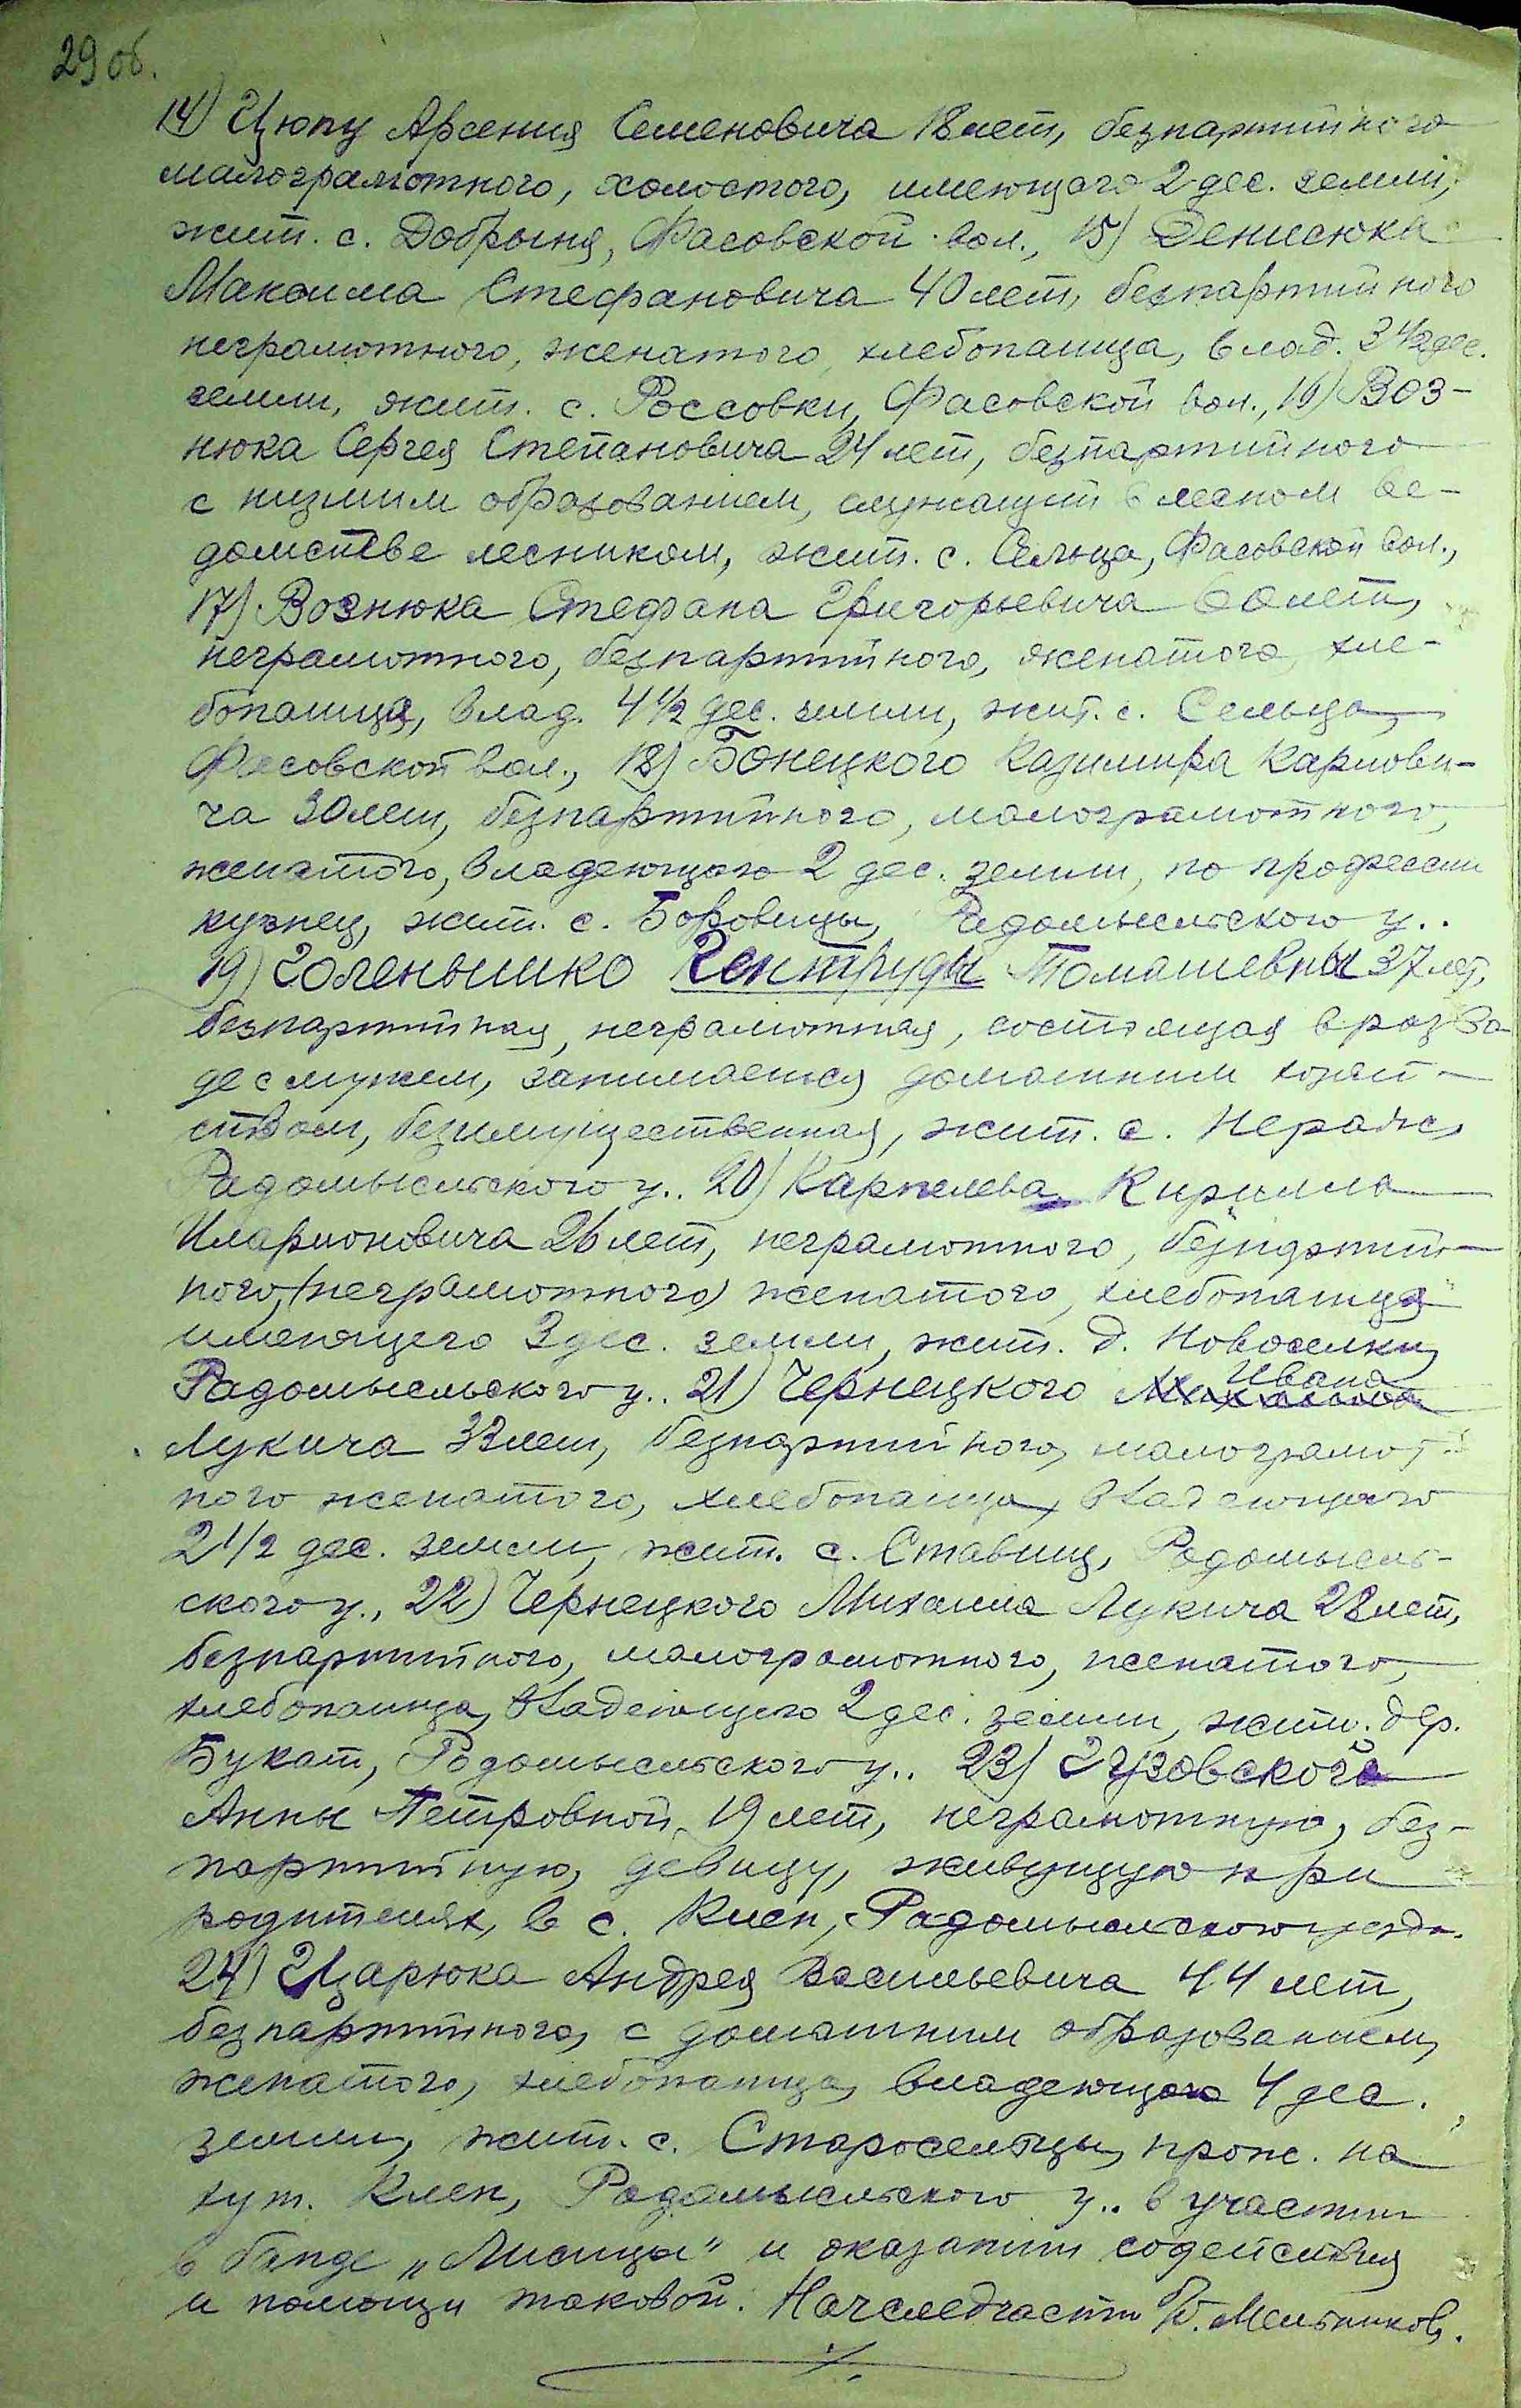 29 об.
14) Цюпу Арсения Семеновича 18 лет, безпартийного
малограмотного, холостого, имеющего 2 дес. земли,
жит. с. Добрыня, Фасовской вол., 15) Денисюка
Максима Стефановича 40 лет, безпартийного
неграмотного, женатого, хлебопашца, влад. 3 1/2 дес.
земли, жит. с. Россовки, Фасовской вол., 16) Воз-
нюка Сергея Степановича 24 лет, безпартийного
с низшим образованием, служащий в лесном ве-
домстве лесником, жит. с. Сельца, Фасовской вол.,
17) Вознюка Стефана Григорьевича 60 лет,
неграмотного, безпартийного, женатого, хле-
бопашца, влад. 4 1/2 дес. земли, жит. с. Сельца,
Фасовской вол., 18) Бонецкого Казимира Карлови-
ча 30 лет, безпартийного, малограмотного,
женатого, владеющего 2 дес. земли, по профессии
кузнец, жит. с. Боровицы, Радомысльского у..
19) Голенышко Гентруды Томашевны 37 лет,
безпартийная, неграмотная, состоящая в разво-
де с мужем, занимается домашним хозяй-
ством, безимущественная, жит. с. Нераж,
Радомысльского у.. 20) Карпелева Кирилла
Иларионовича 26 лет, неграмотного, безпартий-
ного, (неграмотного) женатого, хлебопашца
имеющего 3 дес. земли, жит. д. Новоселки,
Радомысльского у.. 21) Чернецкого Михаила Ивана
Лукича 33 лет, безпартийного, малограмот-
ного женатого, хлебопашца, владеющего
2 1/2 дес. земли, жит. с. Ставищ, Радомысль-
ского у., 22) Чернецкого Михаила Лукича 28 лет,
безпартийного, малограмотного, женатого,
хлебопашца, владеющего 2 дес. земли, жит. дер.
Букат, Радомысльского у.. 23) Гузовской
Анны Петровной 19 лет, неграмотную, без-
партийную, девицу, живущую при
родителях, в с. Клен, Радомысльского уезда.
24) Царюка Андрея Васильевича 44 лет,
безпартийного, с домашним образованием,
женатого, хлебопашца, владеющего 4 дес.
земли, жит. с. Старосельцы, прож. на
хут. Клен, Радомысльского у.. в участии
в банде „Лисицы" и оказании содействия
и помощи таковой. Начследчасти Мельников.